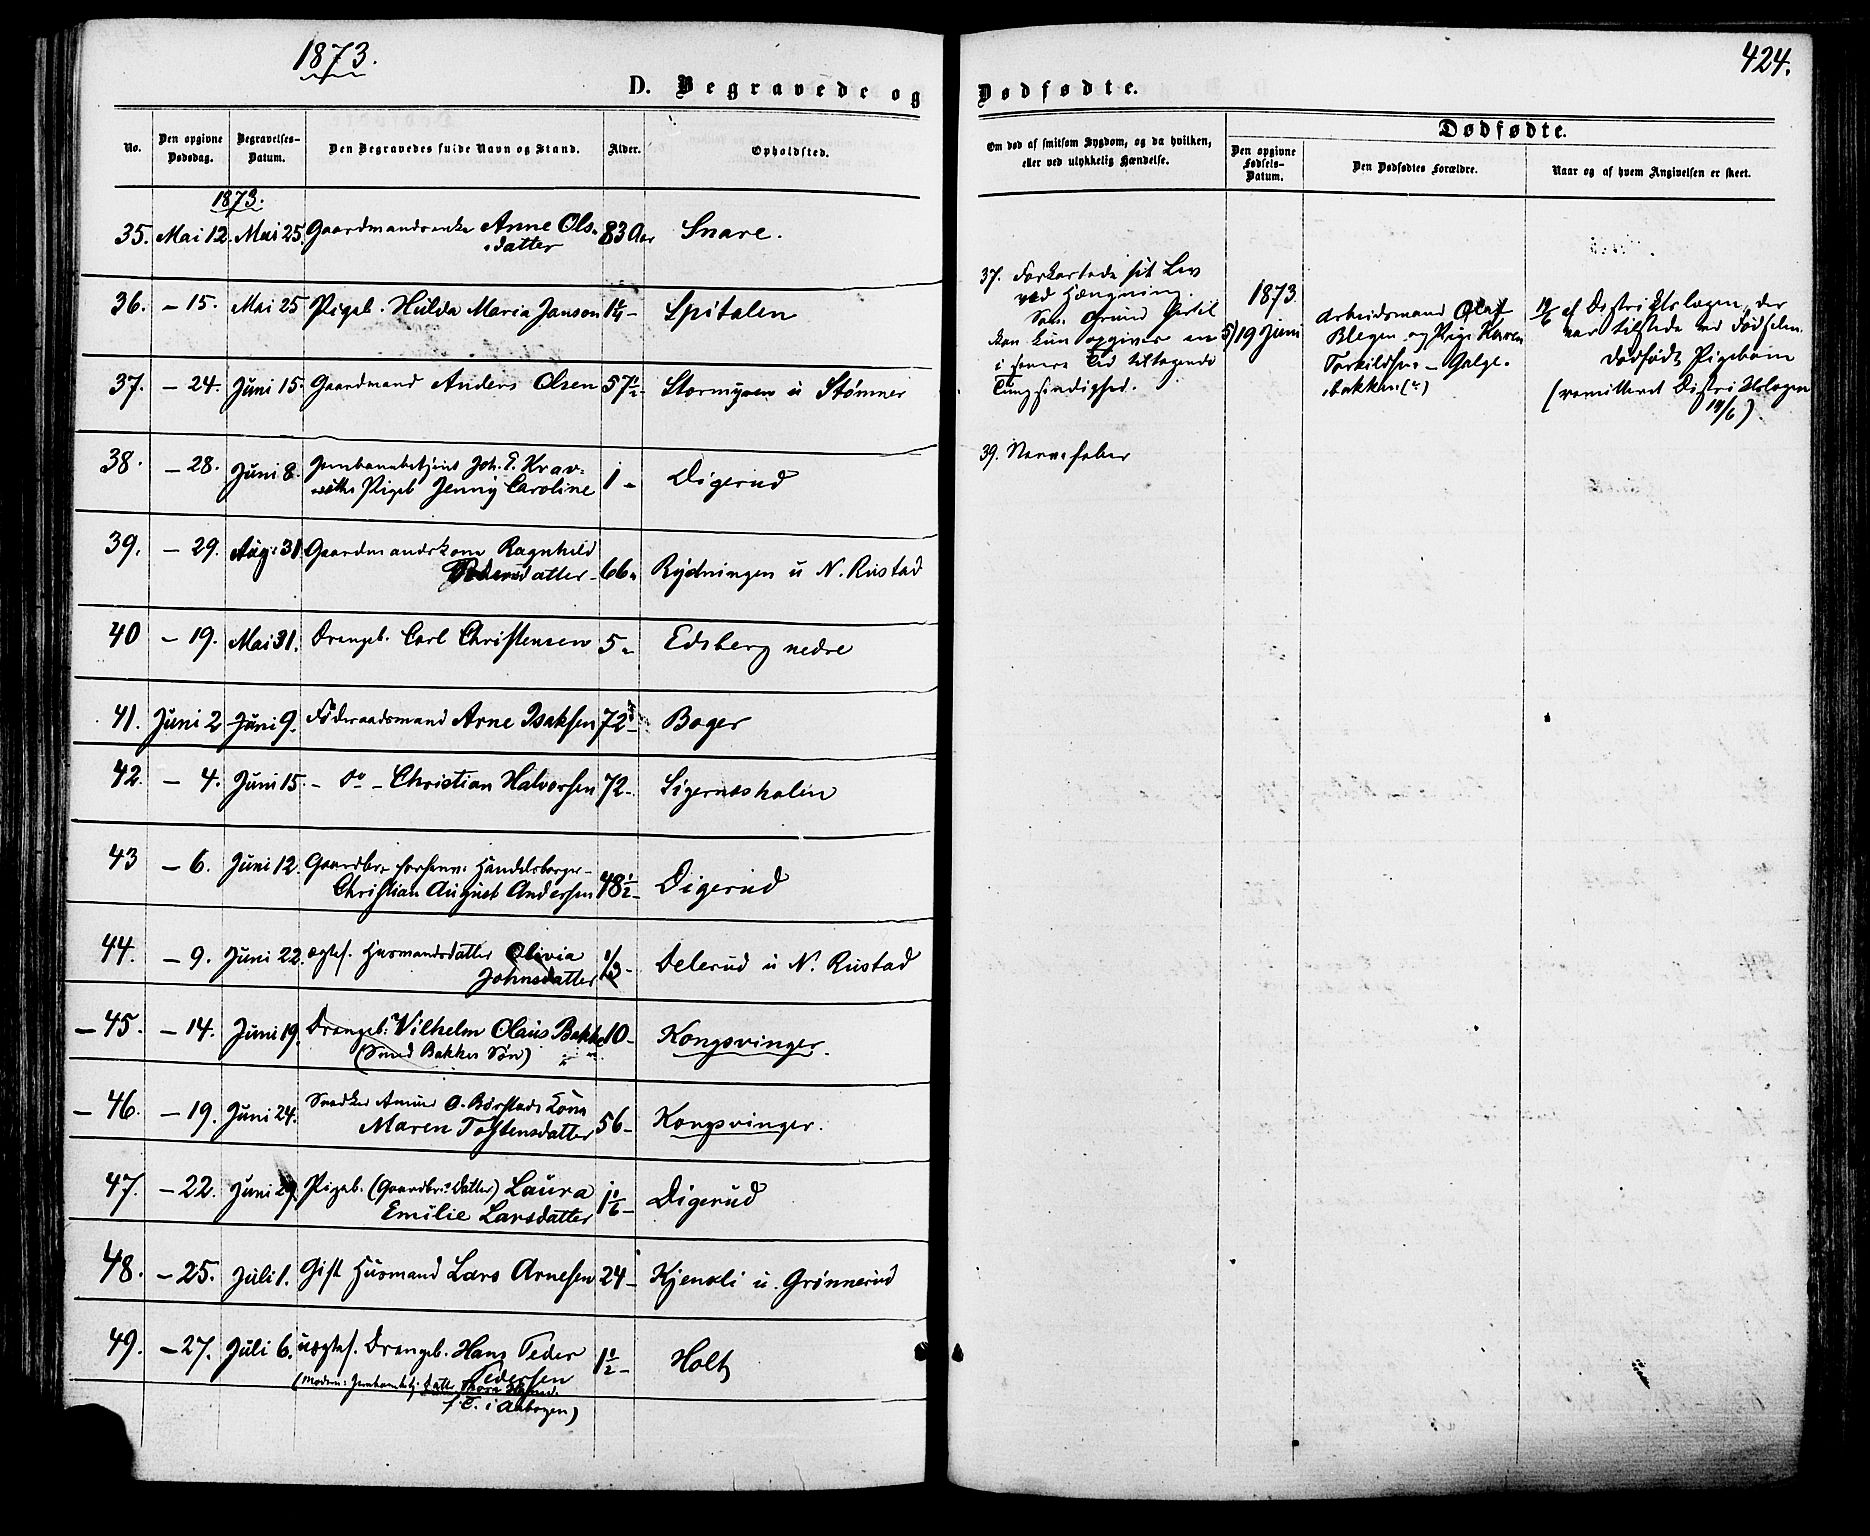 1873.
424.
D. Begravede og Dødfødte.
No.
Den opgivne Dødsdag.
Begravelses-Datum.
Den Begravedes fulde Navn og Stand.
Alder.
Opholdsted.
Om død af smitsom Sygdom, og da hvilken,
eller ved ulykkelig Hændelse.
Dødfødte.
Den opgivne Fødsels-Datum.
Den Dødfødtes Forældre.
Naar og af hvem Angivelsen er skeet.
1873.
35. Mai 12. Mai 25. Gaardmandsenke Anne Ols-
datter 83 Aar Snare.
36. – 15. Mai 25 Pigeb. Hulda Maria Janson 1¼ Spitalen
37. – 24. Juni 15. Gaardmand Anders Olsen 57½ Stormyren u Stømner
38. – 28. Juni 8. Jernbanebetjent Joh. E. Krav-
Pigeb Jenny Caroline 1 – Digerud
39. – 29. Aug. 31. Gaardmandskone Ragnhild
Pedersdatter – 66 Rydningen u N. Rustad
40 – 19. Mai 31. Drengeb. Carl Christensen 5 Edsberg nedre
41. Juni 2 Juni 9. Føderaadsmand Arne Isaksen 72 Boger
42. – 4. Juni 15. – do – Christian Halvorsen 72 – Sigernæsholen
43 – 6. Juni 12. Gaardbr. forhenv. Handelsborger
Christian August Andersen 48½ – Digerud
44. – 9. Juni 22. ægtef. Husmandsdatter Olivia
Johnsdatter 1/3 – Delerud u N. Rustad
– 45. – 14. Juni 19. Drengeb. Vilhelm Olaus Bakke 10 – Kongsvinger.
(Smed Bakkes Søn)
– 46. – 19. Juni 24. Snedker A. Børstads Kone
Maren Tostensdatter 56 – Kongsvinger.
47. – 22. Juni 29. Pigeb. (Gaardbr.s Datter) Laura
Emilie Larsdatter 1 1/6 – Digerud
48. – 25. Juli 1. Gift Husmand Lars Arnesen 24 – Kjensli u. Grønnerud
49. – 27. Juli 6. uægtef. Drengeb. Hans Peder
Pedersen 1½ – Holt
f. E. i Aabogen)
37. Forkortede sit Liv
ved Hængning.
Som Grund hertil
kan kun opgives en
i senere Tid tiltagende
Tungsindighed.
39. Nervefeber
1873.
5) 19 Juni
Arbeidsmand Olaf
Blegen og Pige Karen
Torkildsen – Galge-
bakken (u)
19/6 af Distriktslægen, der
var tilstede ved Fødselen.
Dødfødt Pigebarn
Distriktslægen
19/6).